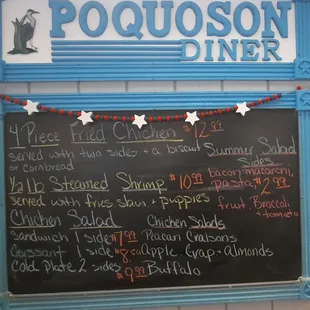 POQUOSON
DINER
4 Piece Fried Chicken $12.99
served with two sides + a biscuit
or cornbread
Summer Salad
Sides
bacon macaroni,
pasta $2.99
fruit, Broccoli
+ tomato
1/2 lb Steamed Shrimp $10.99
served with fries slaw + puppies
Chicken Salad
sandwich 1 side $7.99
Croissant 1 side $8.50
Cold Plate 2 sides $9.99
Chicken Salads
Peacan Craisons
Apple, Grap + Almonds
Buffalo